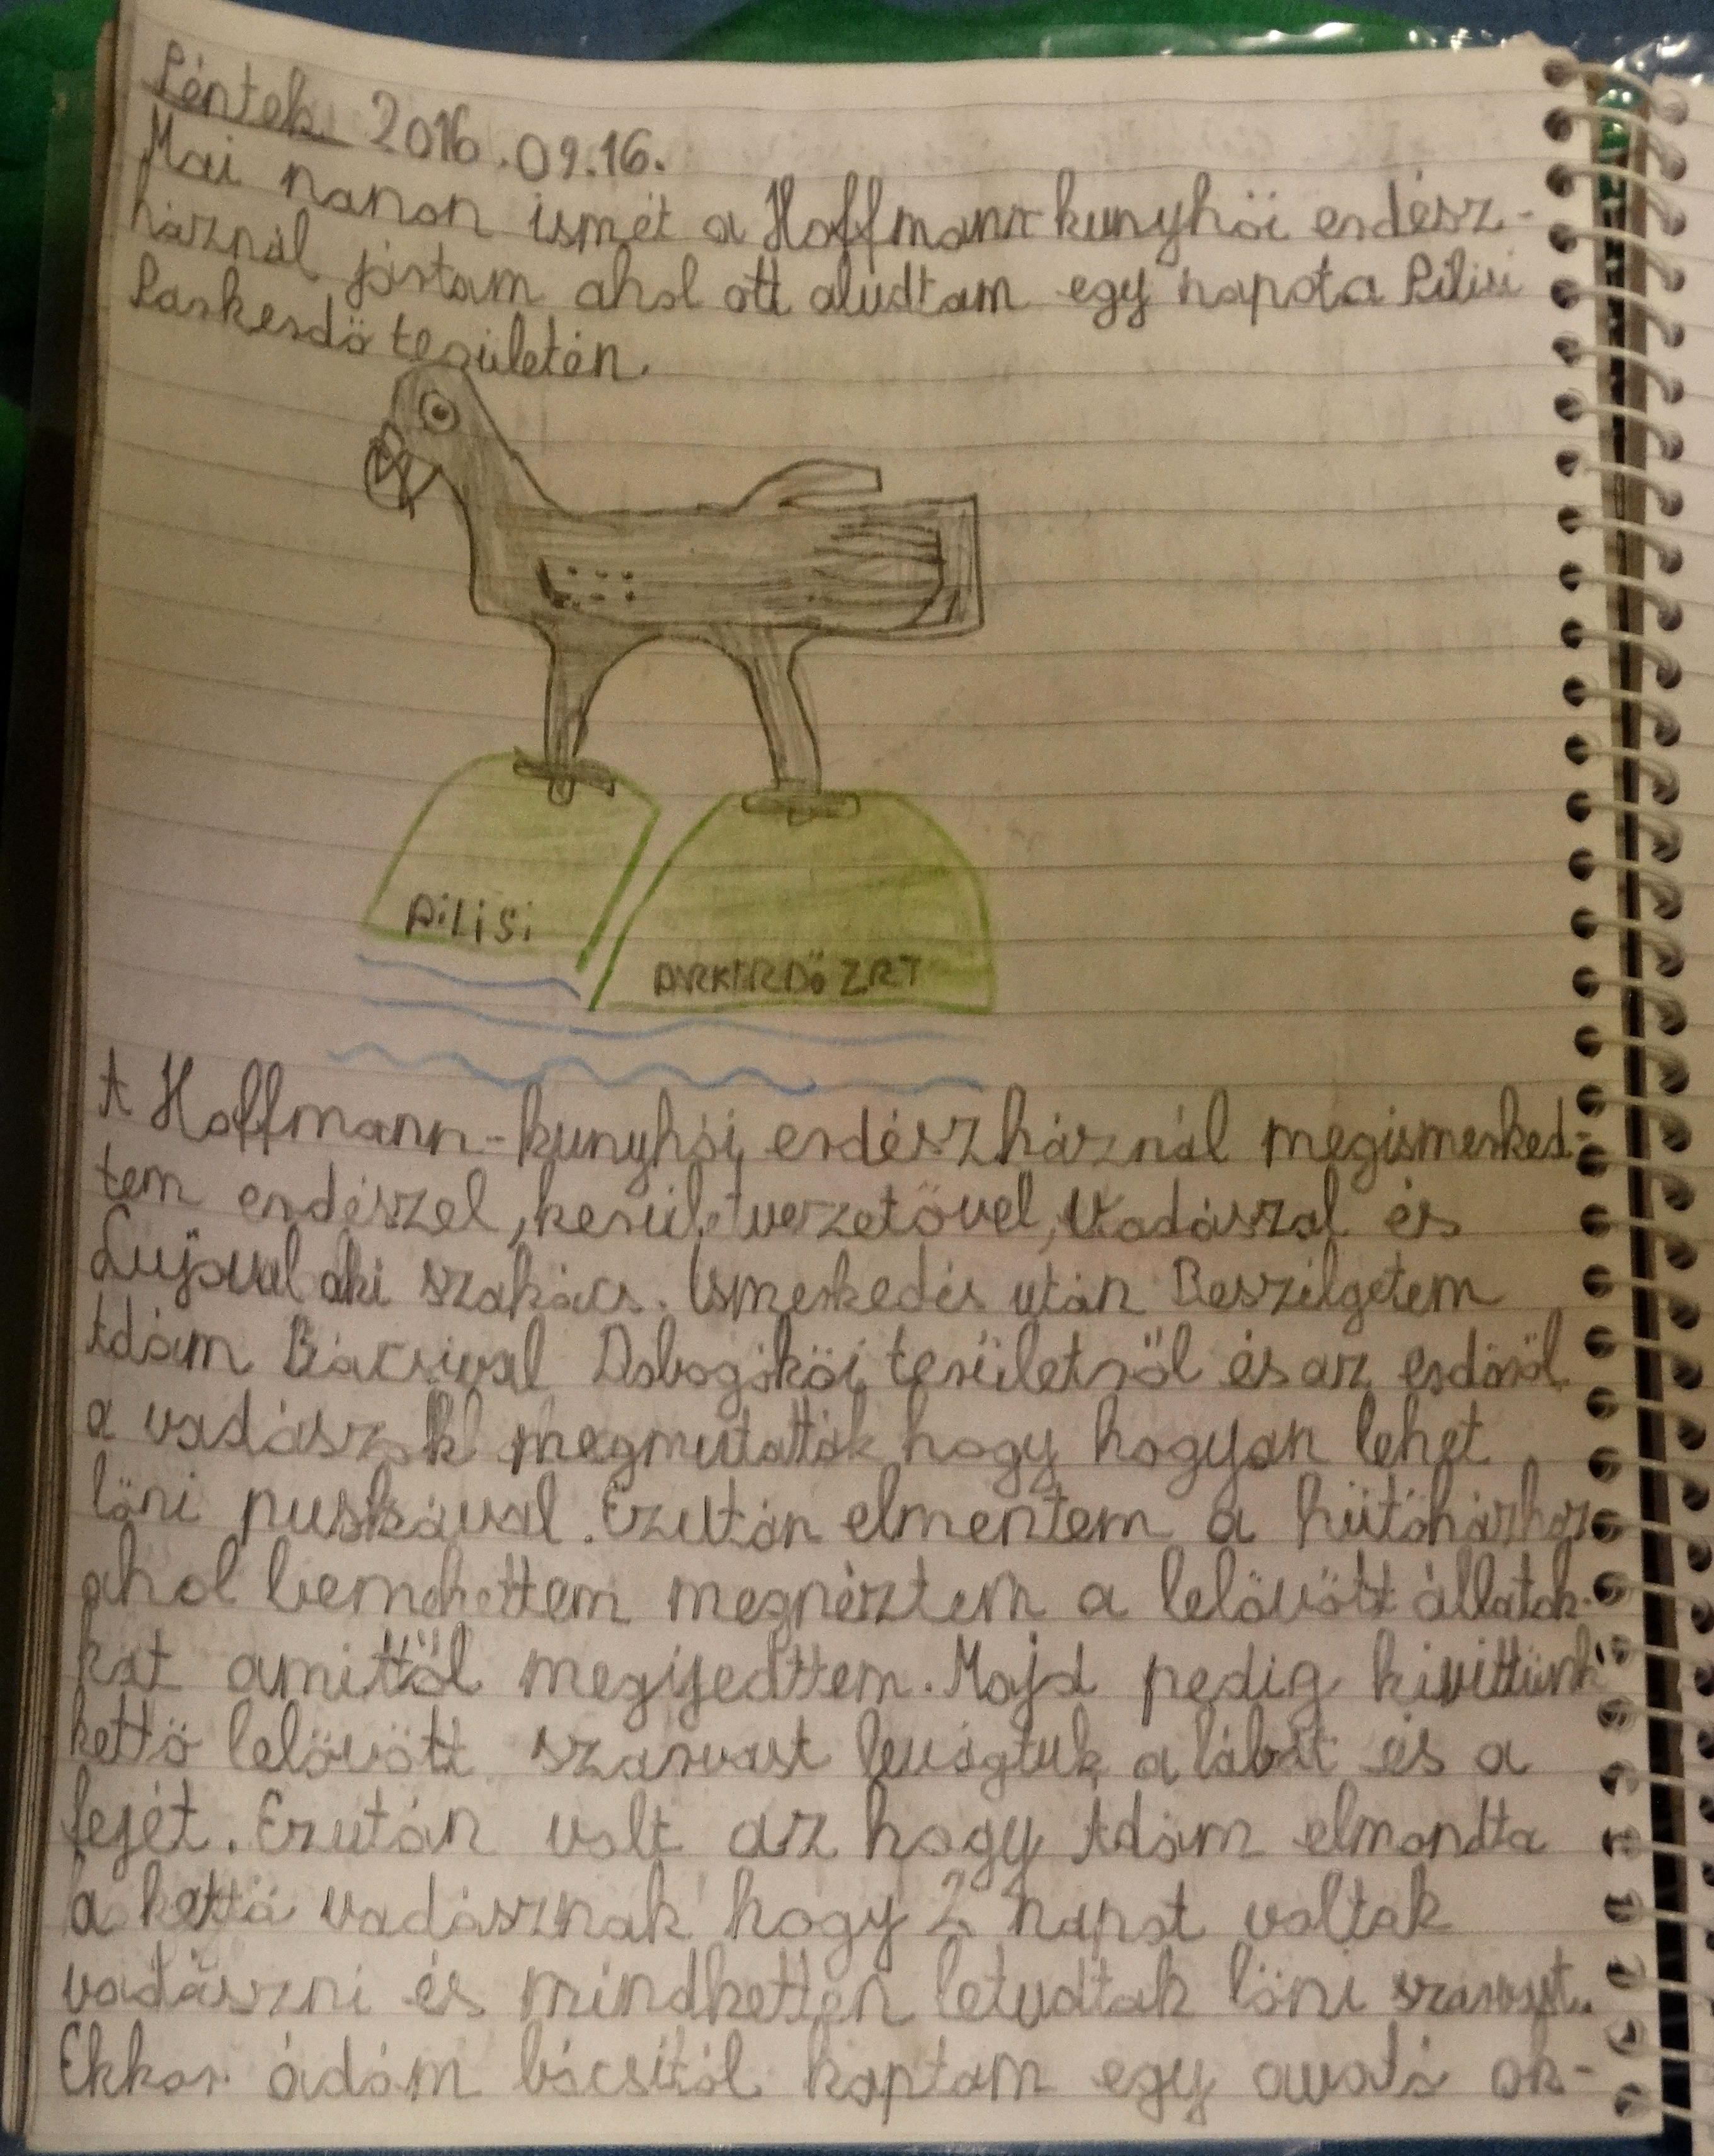 Péntek 2016.09.16.
Mai nanon ismét a Hoffmann kunyhói erdész-
háznál jártam ahol ott aludtam egy napot a Pilisi
Parkerdő területén.
PiLiSi
PARKERDŐ ZRT
A Hoffmann-kunyhói erdészháznál megismerked-
tem erdészel, kerületvezetővel, Vadászal és
Lujával aki szakács. Ismerkedés után Beszélgetem
Ádám Bácsival Dobogókői területről és az erdőről
a vadászok megmutatták hogy hogyan lehet
lőni puskával. Ezután elmentem a hűtőházhoz
ahol bemehettem megnéztem a lelövött állatok-
kat amittől megijedttem. Majd pedig kivittünk
kettő lelövött szarvast levágtuk a lábát és a
fejét. Ezután volt az hogy Ádám elmondta
a kettő vadásznak hogy 2 napot voltak
vadászni és mindketten letudtak lőni szarvast.
Ekkor ádám bácsitól kaptam egy avató ok-